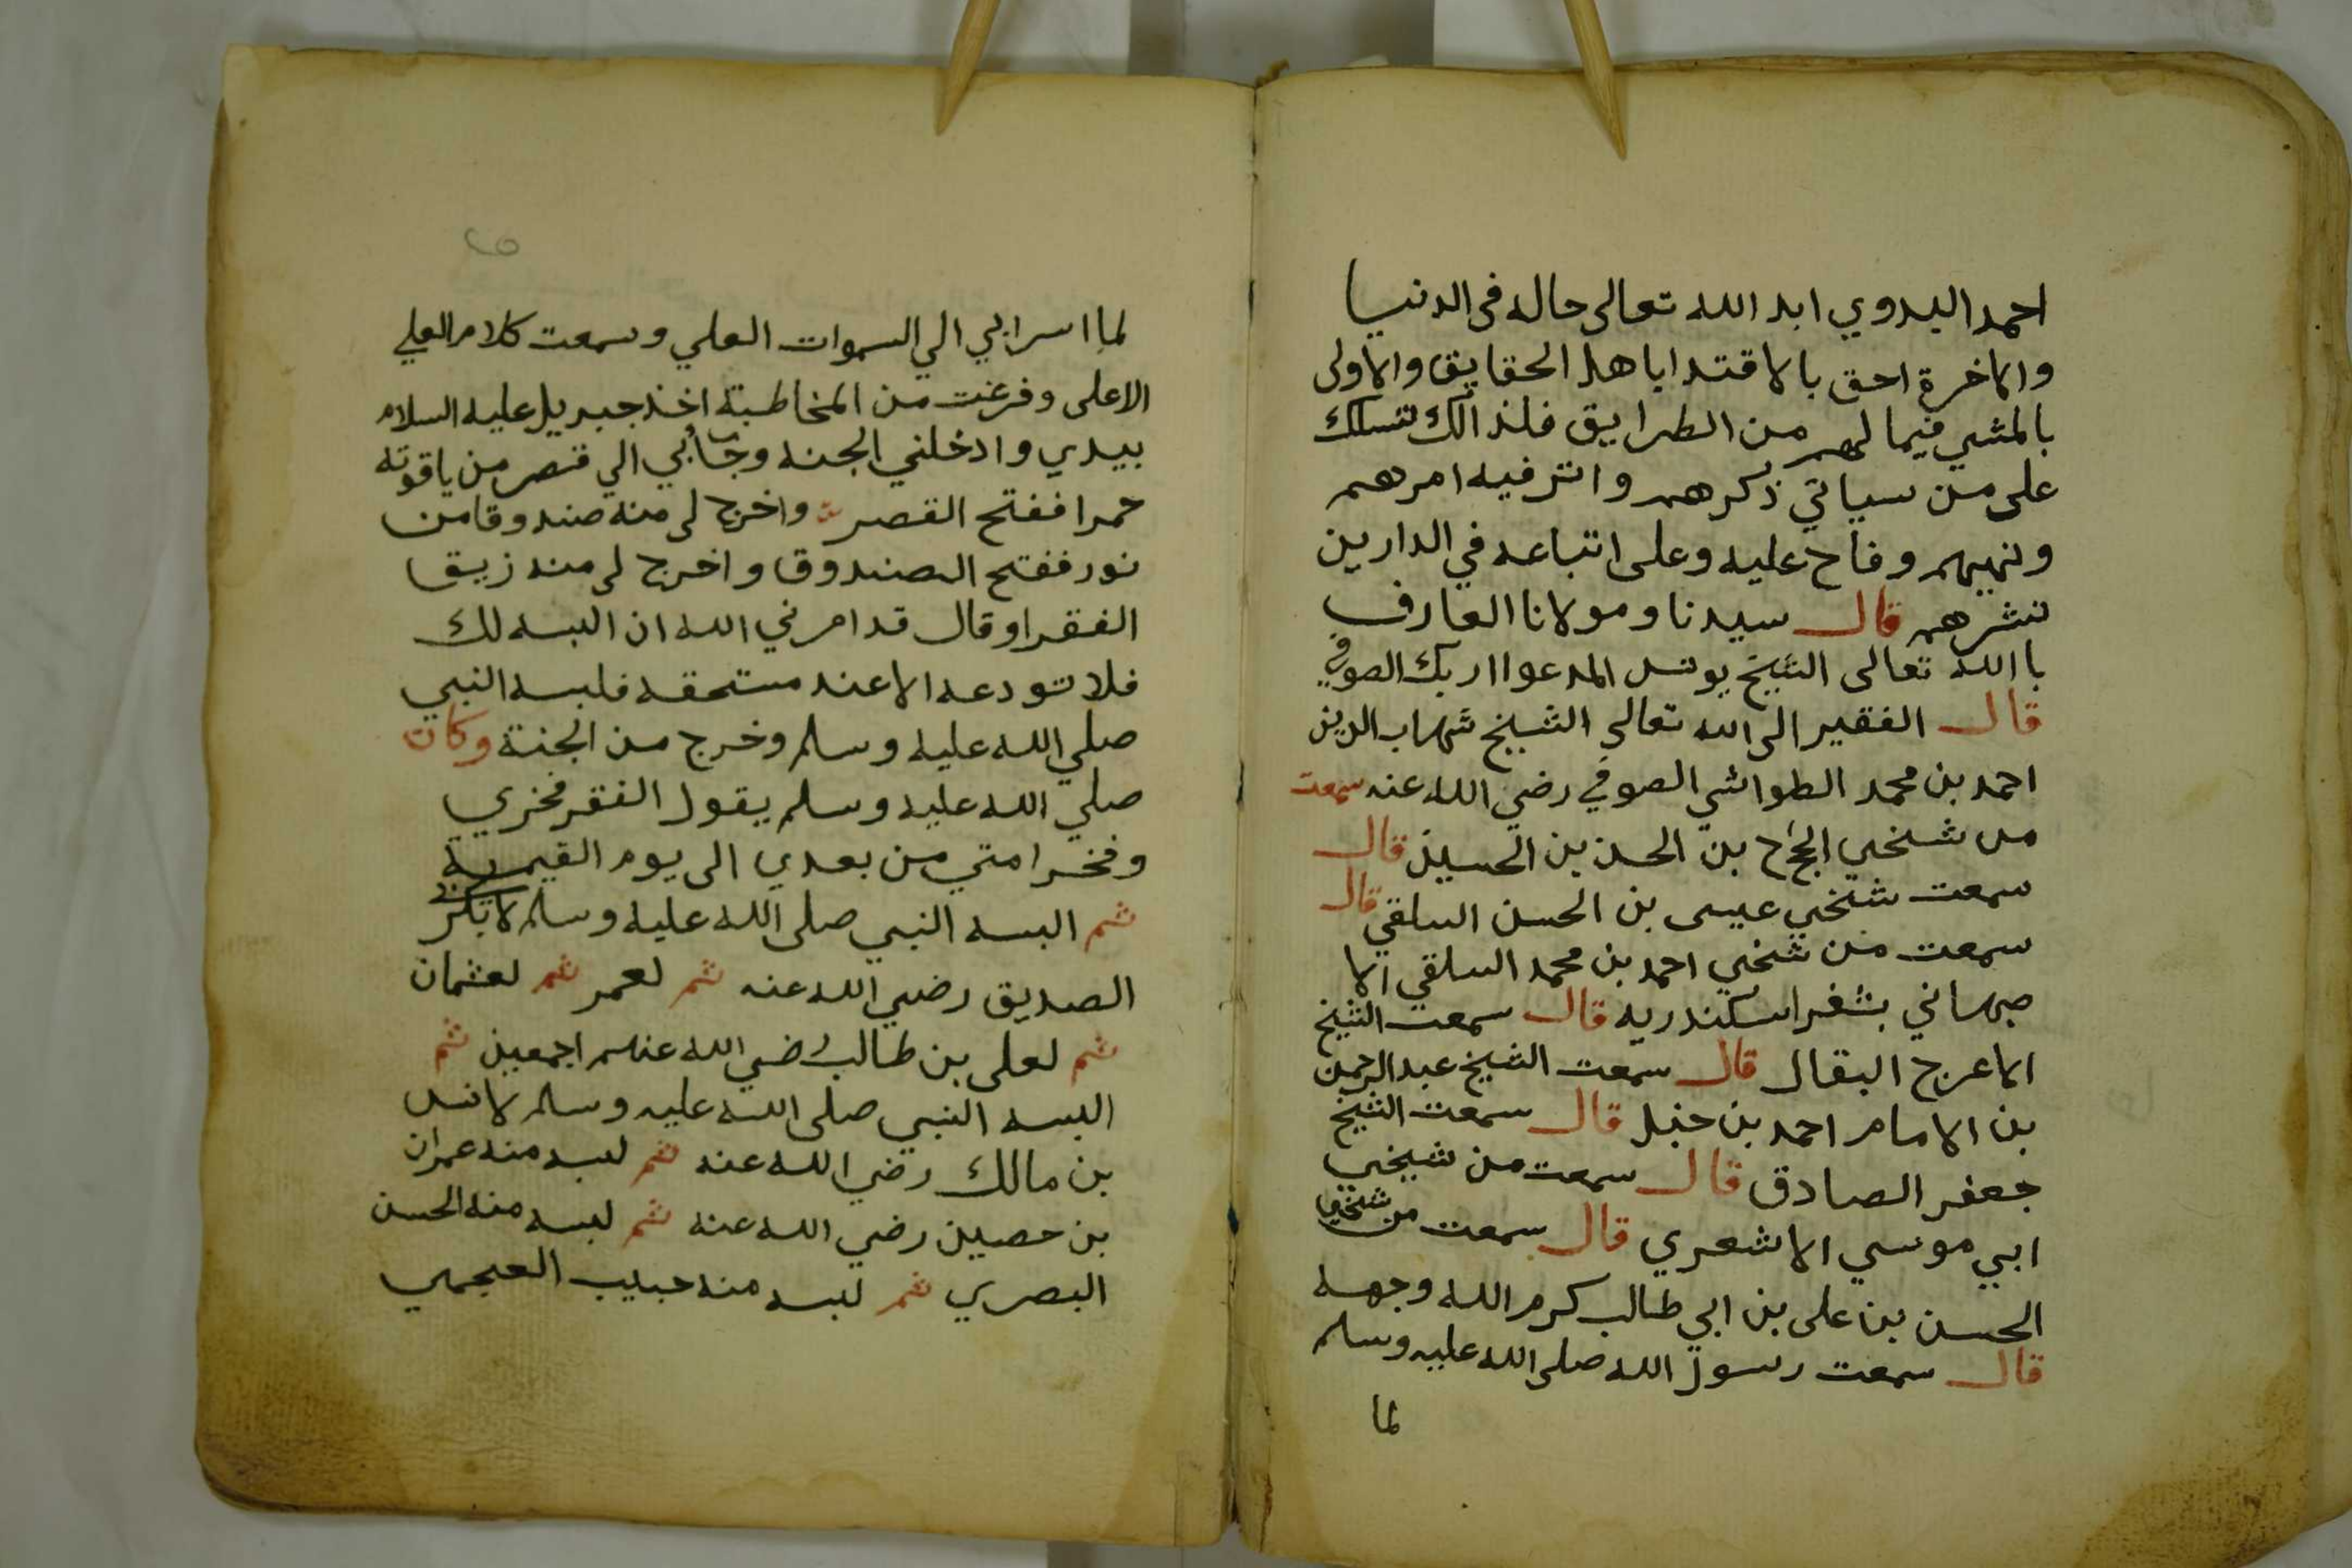 احمد البدوي ابد الله تعالى حاله فى الدنيا
والاخرة احق بالاقتدا باهل الحقايق والاولى
بالمشي فيما لهم من الطرايق فلذالك تسلك
على من سياتي ذكرهم وانتر فيه امرهم
ونهيهم وفاح عليه وعلى اتباعه في الدارين
نشرهم قال سيدنا ومولانا العارف
باالله تعالى الشيخ يونس المدعوا اربك الصوفي
قال الفقير الى الله تعالى الشيخ شهاب الدين
احمد بن محمد الطواشي الصوفي رضي الله عنه سمعت
من شيخي بن الحسن بن الحسين قال
سمعت شيخي عيسى بن الحسن السلقي قال
سمعت من شيخي احمد بن محمد السلقي الا
صبهاني بثغر اسكندريه قال سمعت الشيخ
الاعرج البقال قال سمعت الشيخ عبد الرحمن
بن الامام احمد بن حنبل قال سمعت الشيخ
جعفر الصادق قال سمعت من شيخي
ابي موسي الاشعري قال سمعت من شيخي
الحسن بن على بن ابي طالب كرم الله وجهه
قال سمعت رسول الله صلى الله عليه وسلم
لما
٢٥
لما اسرا بي الي السموات العلي وسمعت كلام العلي
الاعلى وفرغت من المخاطبة اخذ جبريل عليه السلام
بيدي وادخلني الجنه وجا بي الي قصر من ياقوته
حمرا ففتح القصر واخرج لى منه صندوقا من
نور ففتح الصندوق واخرج لى منه زيق
الفقرا وقال قد امرني الله ان البسه لك
فلا تودعه الا عند مستحقه فلبسه النبي
صلي الله عليه وسلم وخرج من الجنة وكان
صلي الله عليه وسلم يقول الفقر فخري
وفخر امتي من بعدي الى يوم القيمة
ثم البسه النبي صلى الله عليه وسلم لابي بكر
الصديق رضي الله عنه ثم لعمر ثم لعثمان
ثم لعلى بن طالب رضي الله عنهم اجمعين ثم
البسه النبي صلى الله عليه وسلم لانس
بن مالك رضي الله عنه ثم لبسه منه عمران
بن حصين رضي الله عنه ثم لبسه منه الحسن
البصري ثم لبسه منه حبيب العجمي